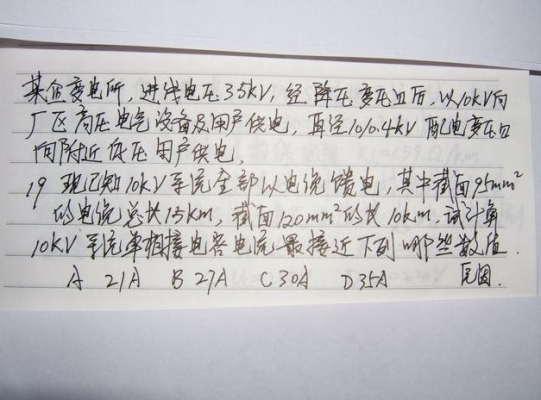 某企变电所,进线电压35kV,经降压变压口后,以10kV向
厂区高压电气设备及用户供电,再经10/0.4kV配电变压口
向附近低压用户供电,
19 现已知10kV系统全部以电缆馈电,其中截面95mm²
的电缆总长15km,截面120mm²的长10km.试计算
10kV系统单相接电容电流最接近下列哪些数值.
A 21A B 27A C 30A D 35A 见图.